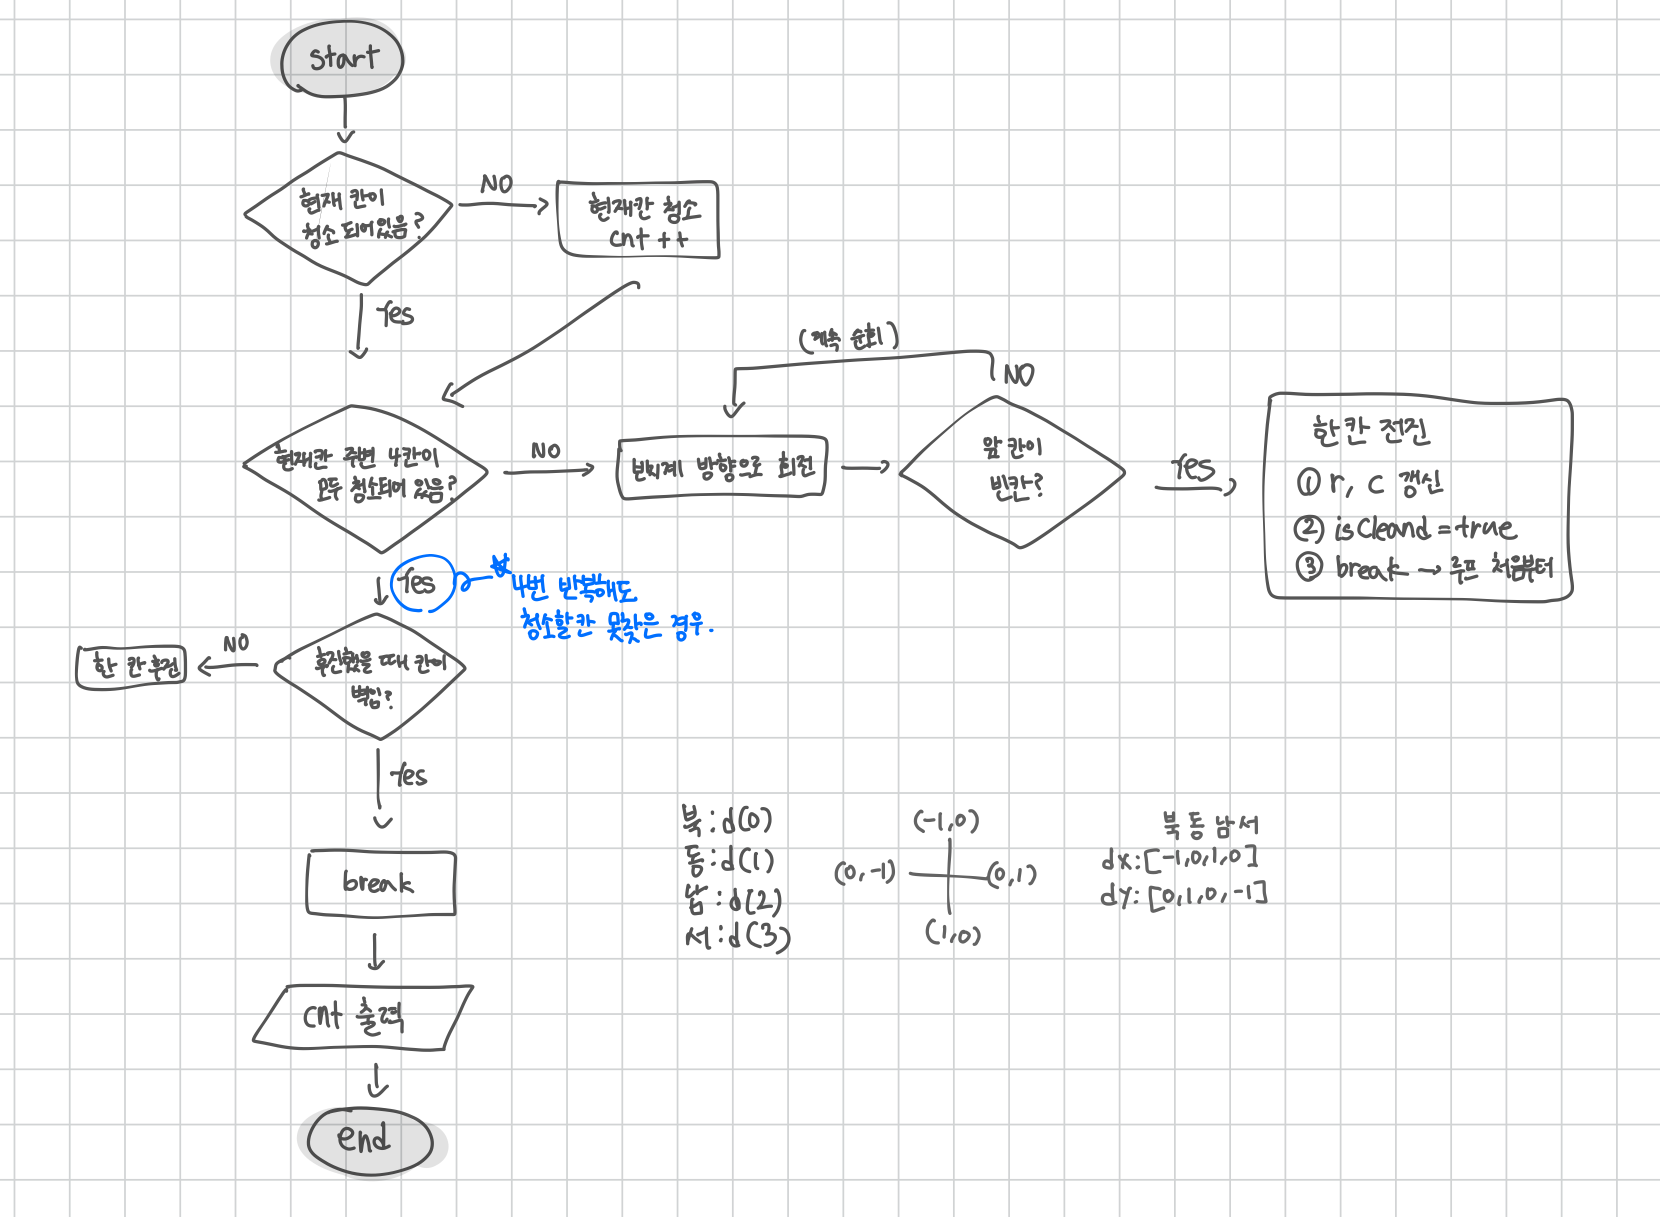 start
현재 칸이
청소 되어있음?
NO
현재칸 청소
cnt ++
Yes
(계속 순회)
NO
현재칸 주변 4칸이
모두 청소되어 있음?
NO
반시계 방향으로 회전
앞 칸이
빈칸?
Yes
한 칸 전진
① r, c 갱신
② isCleand = true
③ break → 루프 처음부터
Yes
4번 반복해도
청소할칸 못찾은 경우.
후진했을 때 칸이
벽임?
NO
한 칸 후진
Yes
break
cnt 출력
end
북:d(0)
동:d(1)
남:d(2)
서:d(3)
(-1,0)
(0,-1)
(0,1)
(1,0)
북 동 남 서
dx:[-1,0,1,0]
dy:[0,1,0,-1]